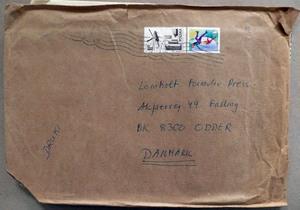 Lomholt Formular Press
Akpevej 49 Falling
DK 8300 ODDER
DANMARK
DRUKI